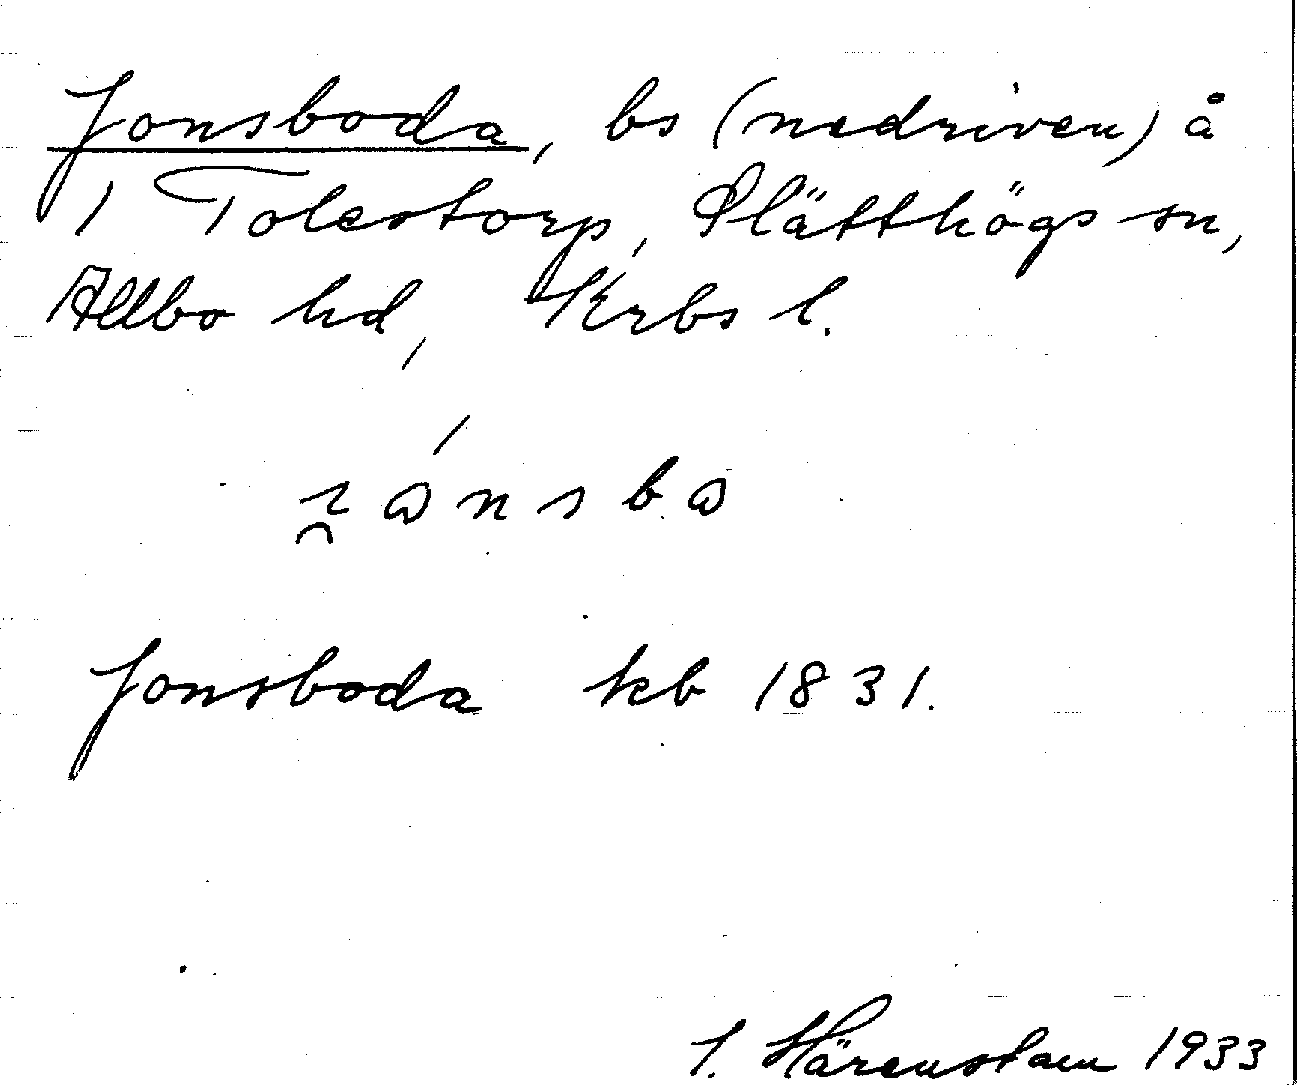 Jonsboda, bs (nedriven) å
1 Tolestorp, Slätthögs sn,
Allbo hd, Krbs l.
Jonsboda kb 1831.
Härenstam 1933